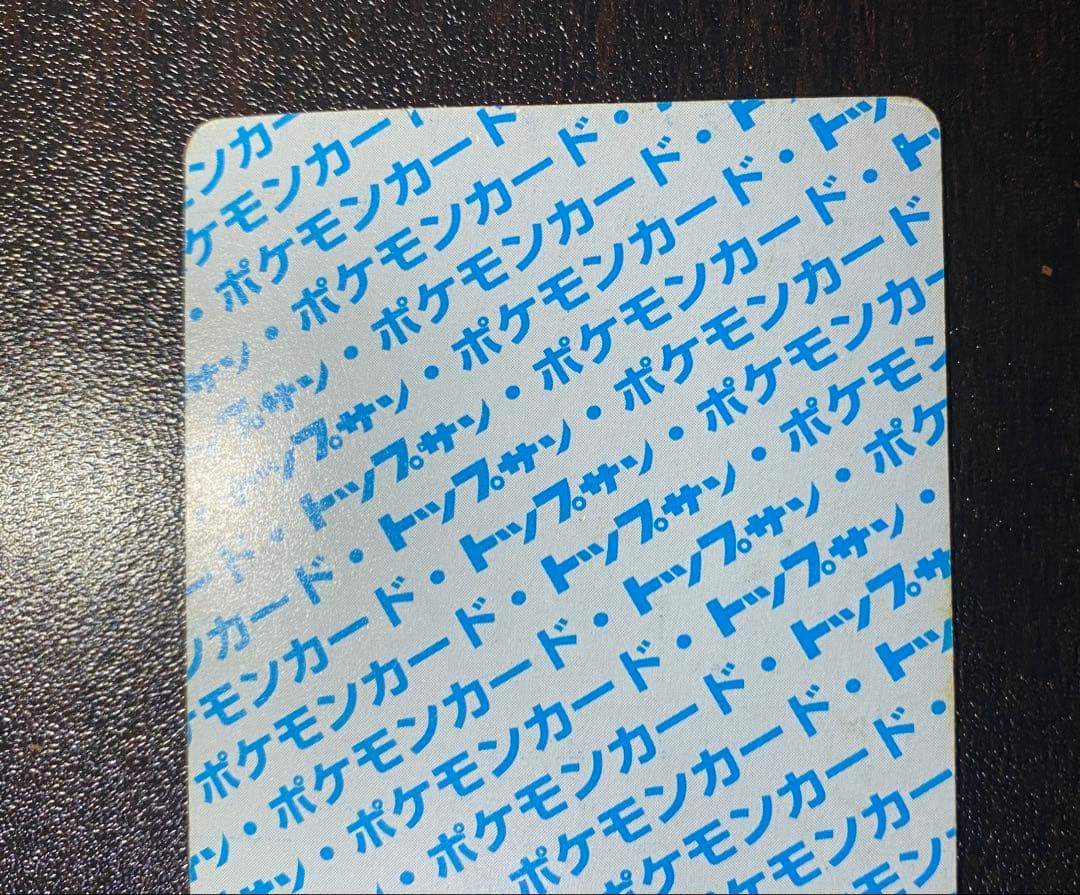 ンカー
ケモンカー
・ポケモンカード
サン・ポケモンカード・
プサン・ポケモンカード・ト
トップサン・ポケモンカード・トッ
ード・トップサン・ポケモンカード・ト
ンカード・トップサン・ポケモンカード
ケモンカード・トップサン・ポケモンカー
ポケモンカード・トップサン・ポケモン
ン・ポケモンカード・トップサン・ポケ
サン・ポケモンカード・トップサン・
ポケモンカード・トップサ
ポケモンカード・トッ
ケモンカード・
モンカー
モン